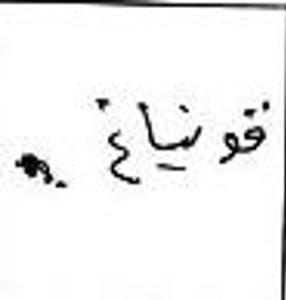 قونياغ